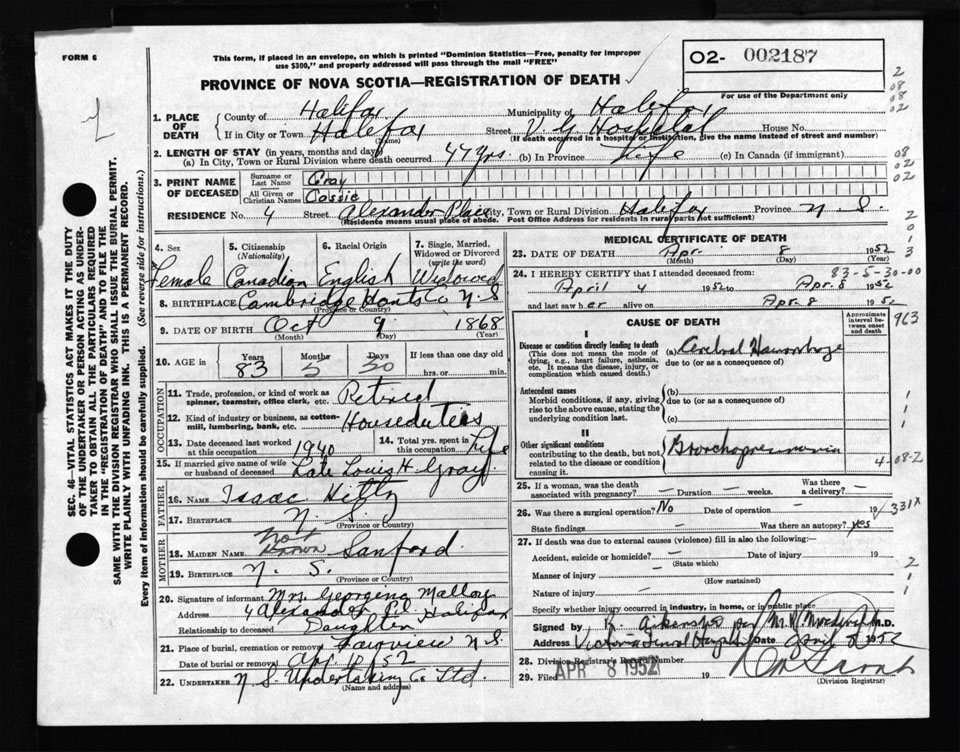 FORM 6
This form, if placed in an envelope, on which is printed "Dominion Statistics—Free, penalty for improper
use $300," and properly addressed will pass through the mail "FREE"
O2- 002187
PROVINCE OF NOVA SCOTIA—REGISTRATION OF DEATH
For use of the Department only
1. PLACE OF DEATH
County of Halifax Municipality of Halifax
If in City or Town Halifax Street V. G. Hospital House No.
(Name) (If death occurred in a hospital or institution, give the name instead of street and number)
2. LENGTH OF STAY (in years, months and days)
(a) In City, Town or Rural Division where death occurred 47 yrs. (b) In Province Life (c) In Canada (if immigrant)
3. PRINT NAME OF DECEASED
Surname or Last Name Gray
All Given or Christian Names Cassie
RESIDENCE No. 4 Street Alexander Place City, Town or Rural Division Halifax Province N.S.
(Residence means usual place of abode. Post Office Address for residents in rural parts not sufficient)
4. Sex
Female
5. Citizenship
(Nationality)
Canadian
6. Racial Origin
English
7. Single, Married,
Widowed or Divorced
(write the word)
Widowed
8. BIRTHPLACE Cambridge Hants Co N.S
(Province or Country)
9. DATE OF BIRTH Oct 9 1868
(Month) (Day) (Year)
10. AGE in
Years Months Days If less than one day old
83 5 30 hrs. or min.
OCCUPATION
11. Trade, profession, or kind of work as
spinner, teamster, office clerk, etc. Retired
12. Kind of industry or business, as cotton-
mill, lumbering, bank, etc. Houseduties
13. Date deceased last worked
at this occupation 1940
14. Total yrs. spent in
this occupation Life
15. If married give name of wife
or husband of deceased Late Louis H. Gray
FATHER
16. NAME Isaac
17. BIRTHPLACE N. S.
(Province or Country)
MOTHER
18. MAIDEN NAME Not Known Sanford
19. BIRTHPLACE N. S.
(Province or Country)
20. Signature of informant Mrs. Georgina Malloy
Address 4 Alexander Pl. Halifax
Relationship to deceased Daughter
21. Place of burial, cremation or removal Fairview N S.
Date of burial or removal Apr 10 52
22. UNDERTAKER N. S. Undertaking Co Ltd.
(Name and address)
MEDICAL CERTIFICATE OF DEATH
23. DATE OF DEATH Apr 8 1952
(Month) (Day) (Year)
83-5-30-00
24. I HEREBY CERTIFY that I attended deceased from:
April 4 1952 to Apr. 8 1952
and last saw her alive on Apr. 8 1952
CAUSE OF DEATH
Approximate interval between onset and death
963
I
Disease or condition directly leading to death
(This does not mean the mode of
dying, e.g., heart failure, asthenia,
etc. It means the disease, injury, or
complication which caused death.)
(a) Cerebral Haemorrhage
due to (or as a consequence of)
Antecedent causes
Morbid conditions, if any, giving
rise to the above cause, stating the
underlying condition last.
(b)
due to (or as a consequence of)
(c)
II
Other significant conditions
contributing to the death, but not
related to the disease or condition
causing it.
Bronchopneumonia
4-08-2
25. If a woman, was the death
associated with pregnancy? — Duration — weeks. Was there a delivery? —
26. Was there a surgical operation? No Date of operation — 19
331X
State findings — Was there an autopsy? yes
27. If death was due to external causes (violence) fill in also the following:—
Accident, suicide or homicide? — Date of injury 19
(State which)
Manner of injury —
(How sustained)
Nature of injury —
Specify whether injury occurred in industry, in home, or in public place
Signed by M.D.
Address Victoria General Hospital Date April 8 1952
28. Division Registrar's Record Number
29. Filed APR 8 1952 19
(Division Registrar)
SEC. 46—VITAL STATISTICS ACT MAKES IT THE DUTY
OF THE UNDERTAKER OR PERSON ACTING AS UNDER-
TAKER TO OBTAIN ALL THE PARTICULARS REQUIRED
IN THE "REGISTRATION OF DEATH" AND TO FILE THE
SAME WITH THE DIVISION REGISTRAR WHO SHALL ISSUE THE BURIAL PERMIT.
WRITE PLAINLY WITH UNFADING INK. THIS IS A PERMANENT RECORD.
Every item of information should be carefully supplied. (See reverse side for instructions.)
2
08
08
02
08
02
02
2
0
1
3
1
1
1
2
1